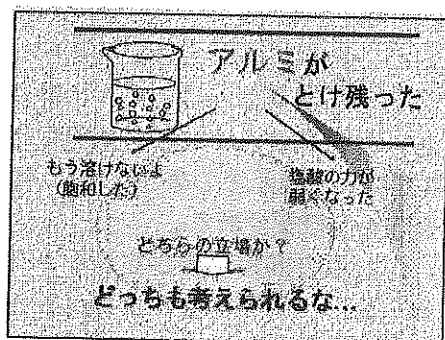 アルミが
とけ残った
もう溶けないよ
(飽和した)
塩酸の力が
弱くなった
どちらの立場か?
どっちも考えられるな...